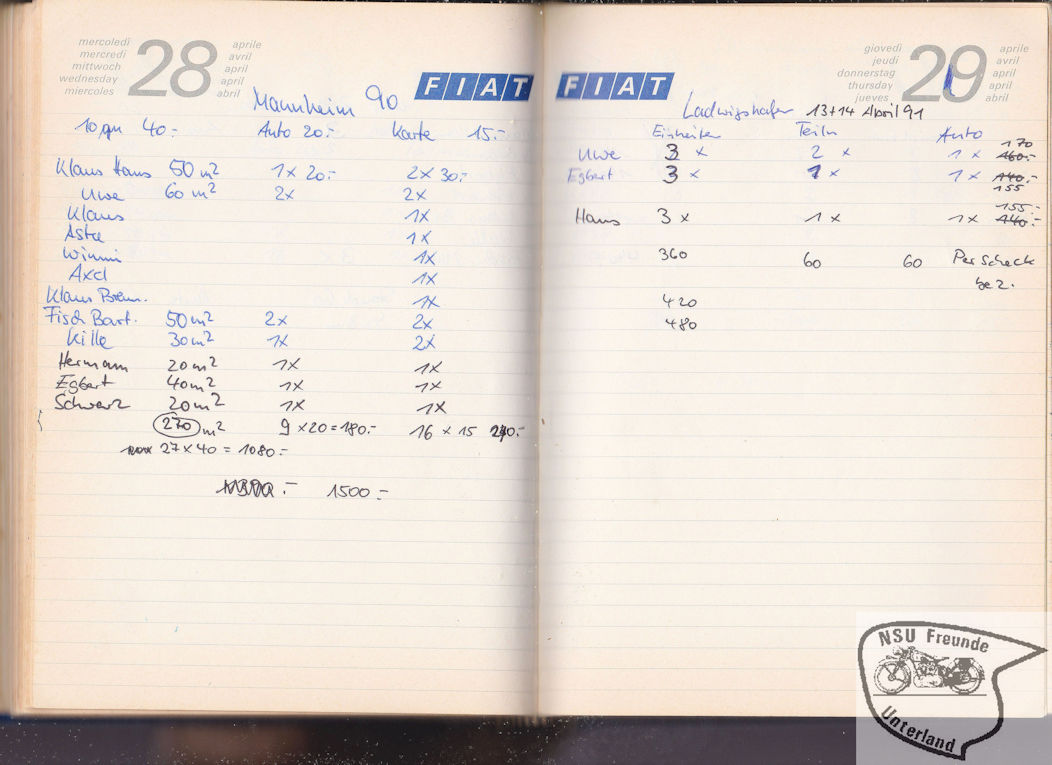 mercoledì
mercredi
mittwoch
wednesday
miercoles
28
aprile
avril
april
april
abril
FIAT
Mannheim 90
10qm 40.- Auto 20.- Karte 15.-
Klaus Hans 50 m² 1x 20.- 2x 30.-
Uwe 60 m² 2x 2x
Klaus 1x
Astra 1x
Winni 1x
Axel 1x
Klaus Brem. 1x
Fisch Bart. 50 m² 2x 2x
Kille 30 m² 1x 2x
Hermann 20 m² 1x 1x
Egbert 40 m² 1x 1x
Schwarz 20 m² 1x 1x
270 m² 9 x 20 = 180.- 16 x 15 240.-
27 x 40 = 1080.-
1500.-
FIAT
giovedì
jeudi
donnerstag
thursday
jueves
29
aprile
avril
april
april
abril
Ludwigshafen 13+14 April 91
Einheiten Teiln Auto
Uwe 3 x 2 x 1 x 160.- 170
Egbert 3 x 1 x 1 x 140.- 155
Hans 3 x 1 x 1x 140.- 155.-
360 60 60 Per Scheck
bez.
420
480
NSU Freunde
Unterland